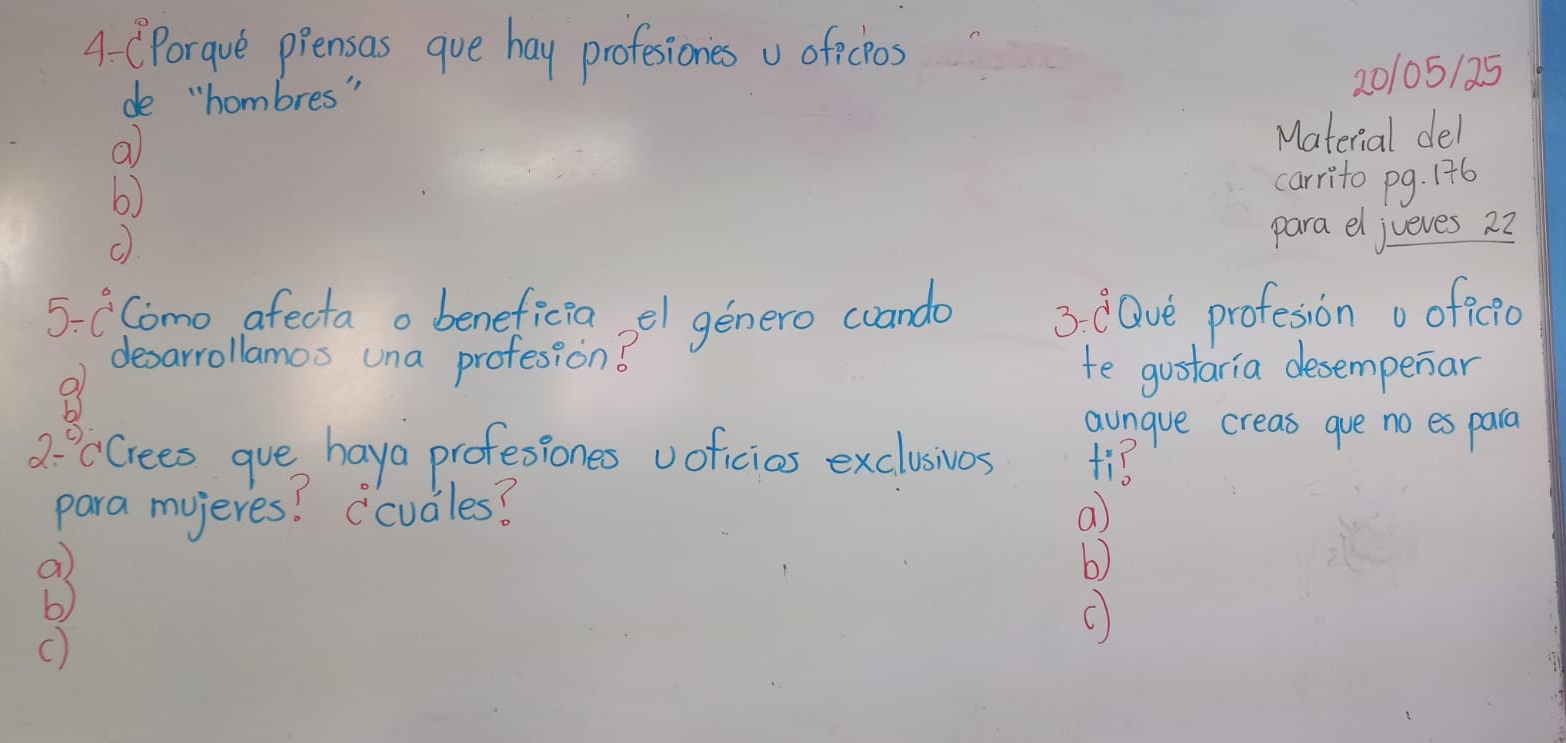 4-¿Porqué piensas que hay profesiones u oficios
de "hombres"
a)
b)
c)
5-¿Cómo afecta o beneficia el género cuando
desarrollamos una profesión?
a)
b)
c)
2-¿Crees que haya profesiones u oficios exclusivos
para mujeres? ¿cuáles?
a)
b)
c)
20/05/25
Material del
carrito pg. 176
para el jueves 22
3-¿Qué profesión u oficio
te gustaría desempeñar
aunque creas que no es para
ti?
a)
b)
c)